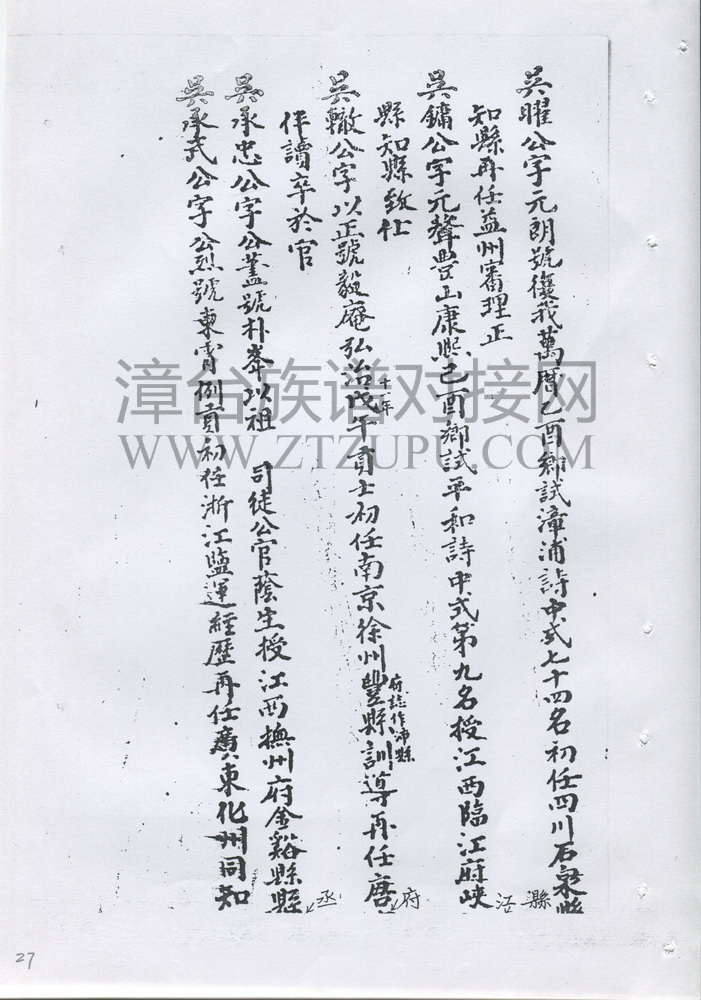 吳曜公字元朗號復我萬曆乙酉鄉試漳浦詩中式七十四名初任四川石泉縣
縣
知縣再任益州審理正
吳鏞公字元聲豊山康熙己酉鄉試平和詩中式第九名授江西臨江府峽
江
縣知縣致仕
吳轍公字以正號毅庵弘治戊午貢士初任南京徐州豐縣訓導再任唐
十一年
府誌作沛縣
府
伴讀卒於官
吳承忠公字公蓋號朴峯以祖 司徒公官蔭生授江西撫州府金谿縣縣
丞
吳承武公字公烈號東 例貢初任浙江鹽運經歷再任廣東化州同知
漳台族谱对接网
WWW.ZTZUPU.COM
27